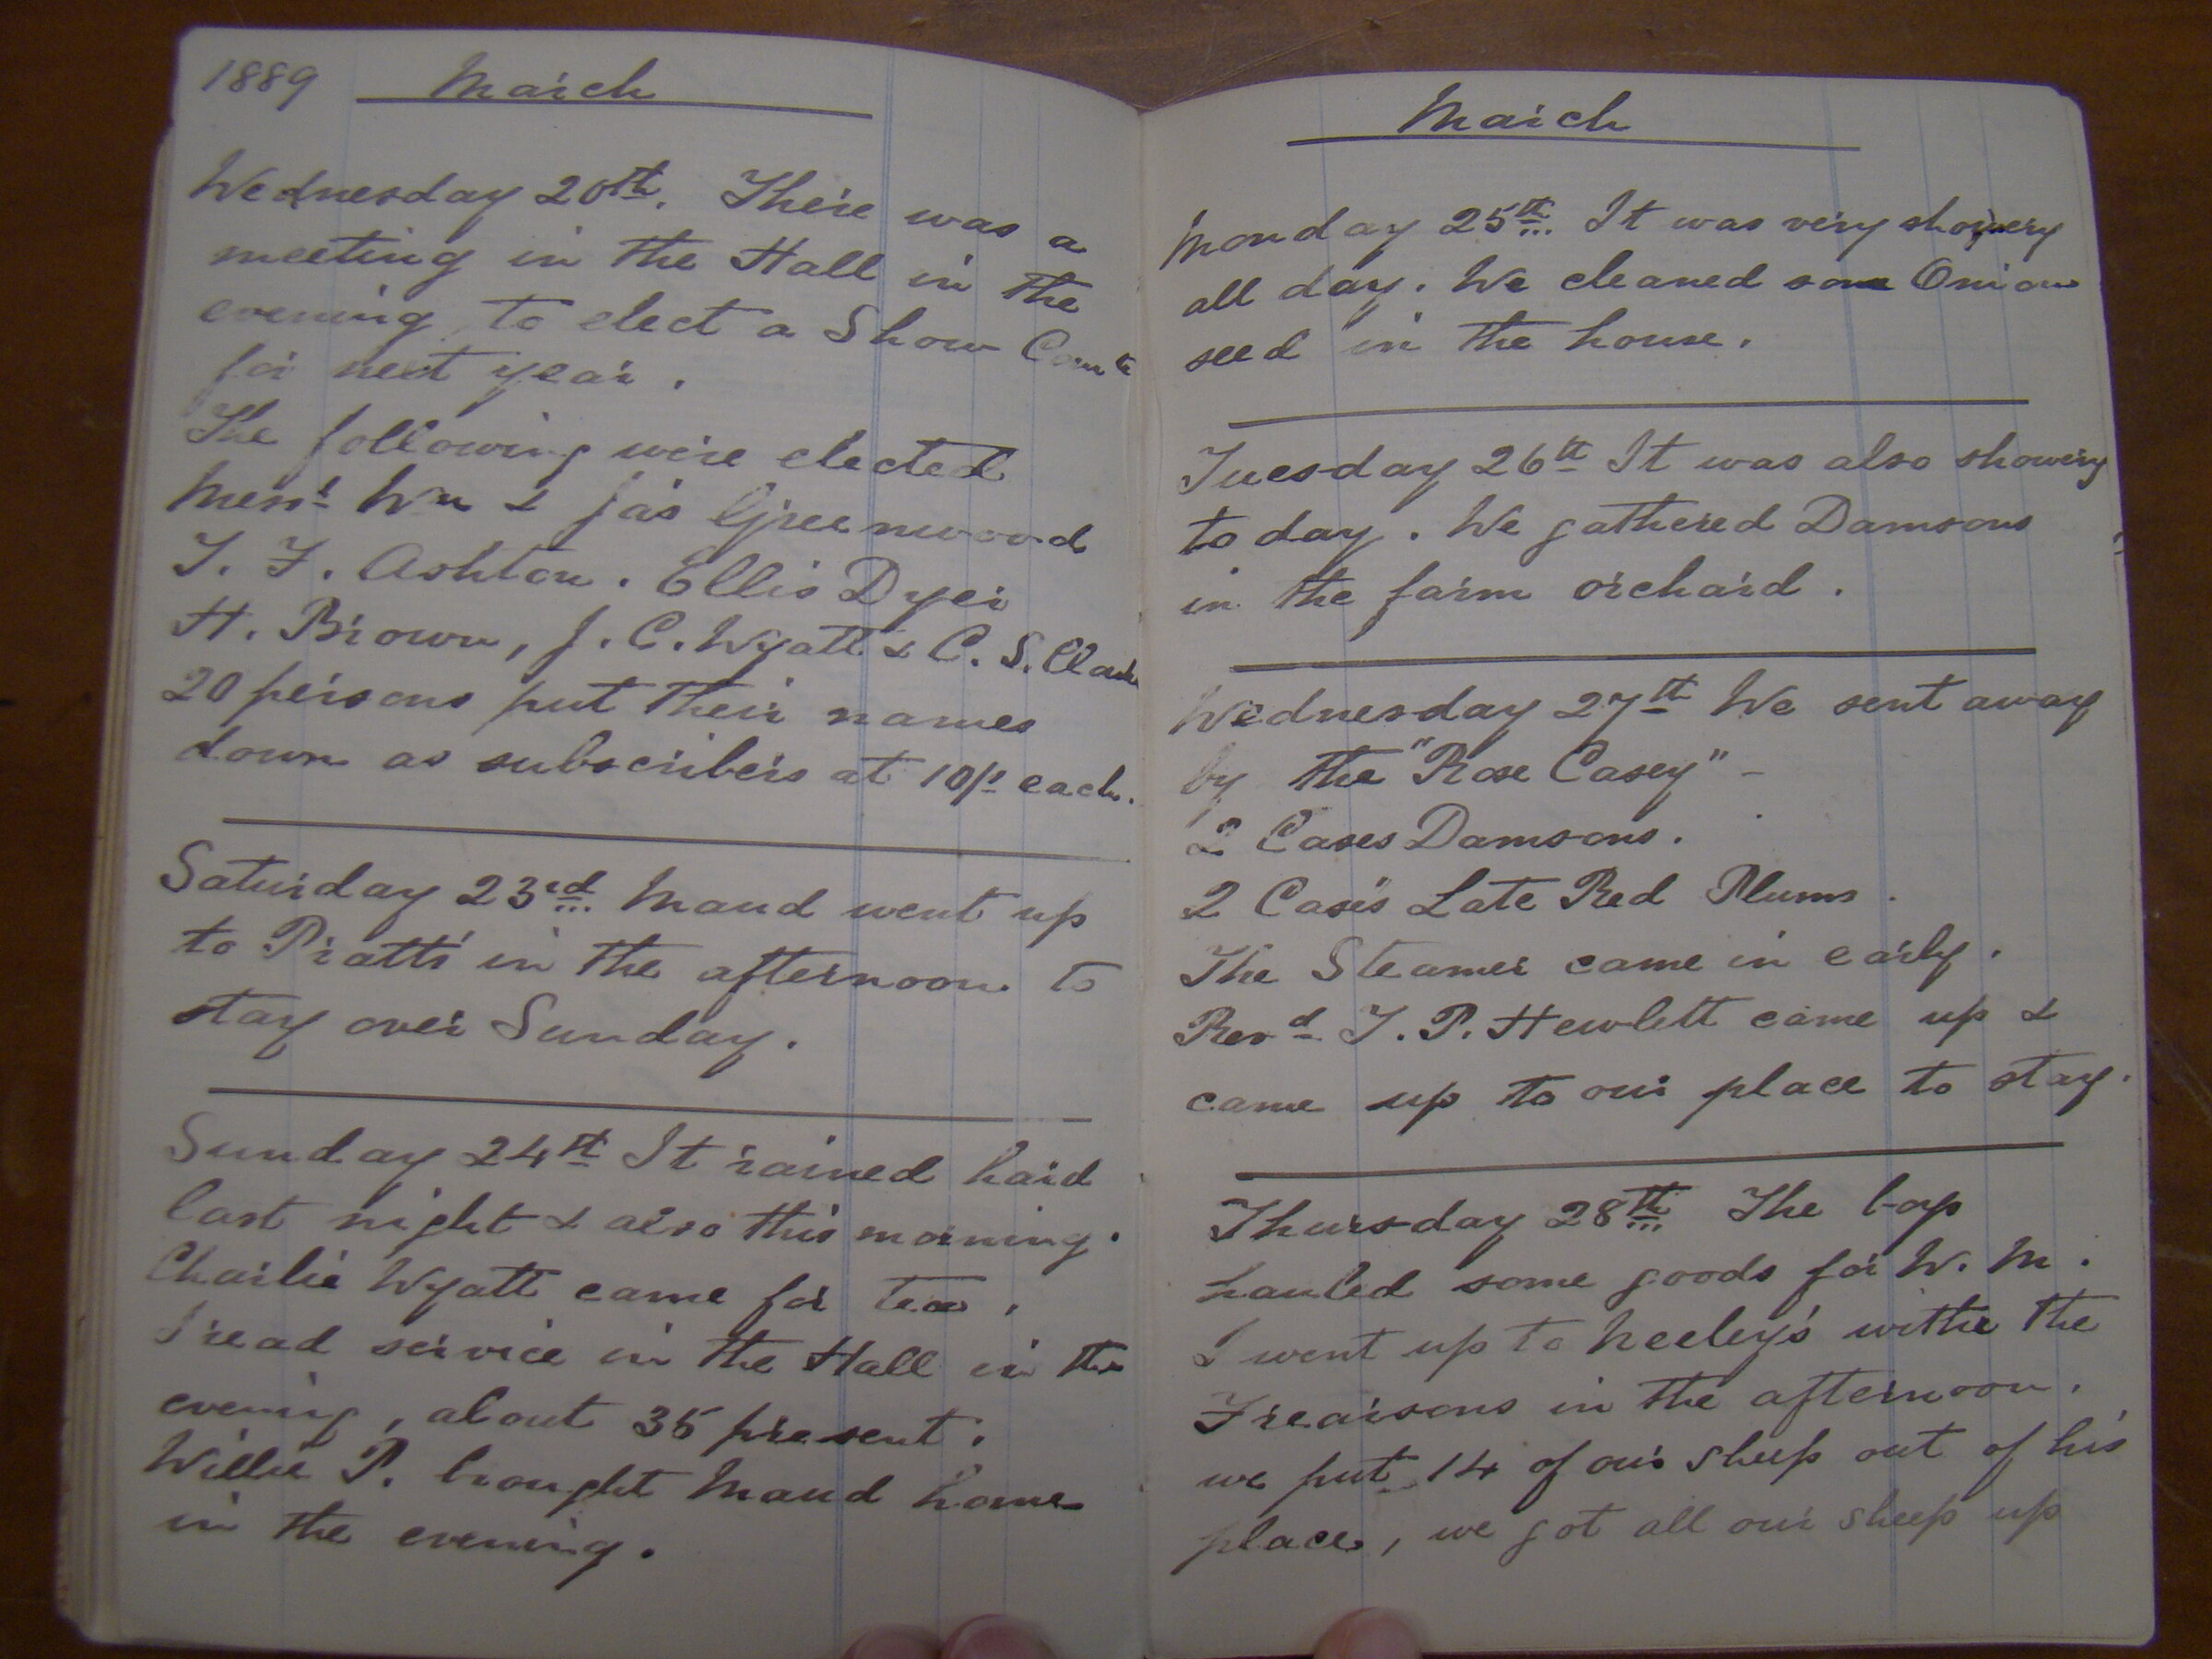 1889 March
Wednesday 20th. There was a
meeting in the Hall in the
evening to elect a Show Comte
for next year.
The following were elected
Messrs Wm & Jas Greenwood
T. F. Ashton. Ellis Dyer
H. Brown, J. C. Wyatt & C. S. Clarke
20 persons put their names
down as subscribers at 10/s each.
Saturday 23rd Maud went up
to Pratts' in the afternoon to
stay over Sunday.
Sunday 24th It rained hard
last night & also this morning.
Charlie Wyatt came for tea.
I read service in the Hall in the
evening, about 35 present.
Willie P. brought Maud home
in the evening.
March
Monday 25th It was very showery
all day. We cleaned some Onion
seed in the house.
Tuesday 26th It was also showery
to day. We gathered Damsons
in the farm orchard.
Wednesday 27th We sent away
by the "Rose Casey" -
2 Cases Damsons.
2 Cases Late Red Plums.
The Steamer came in early.
Revd T. P. Hewlett came up &
came up to our place to stay.
Thursday 28th The
hauled some goods for W. M.
I went up to Neeley's withe the
Frearsons in the afternoon.
we put 14 of our sheep out of his
place, we got all our sheep up